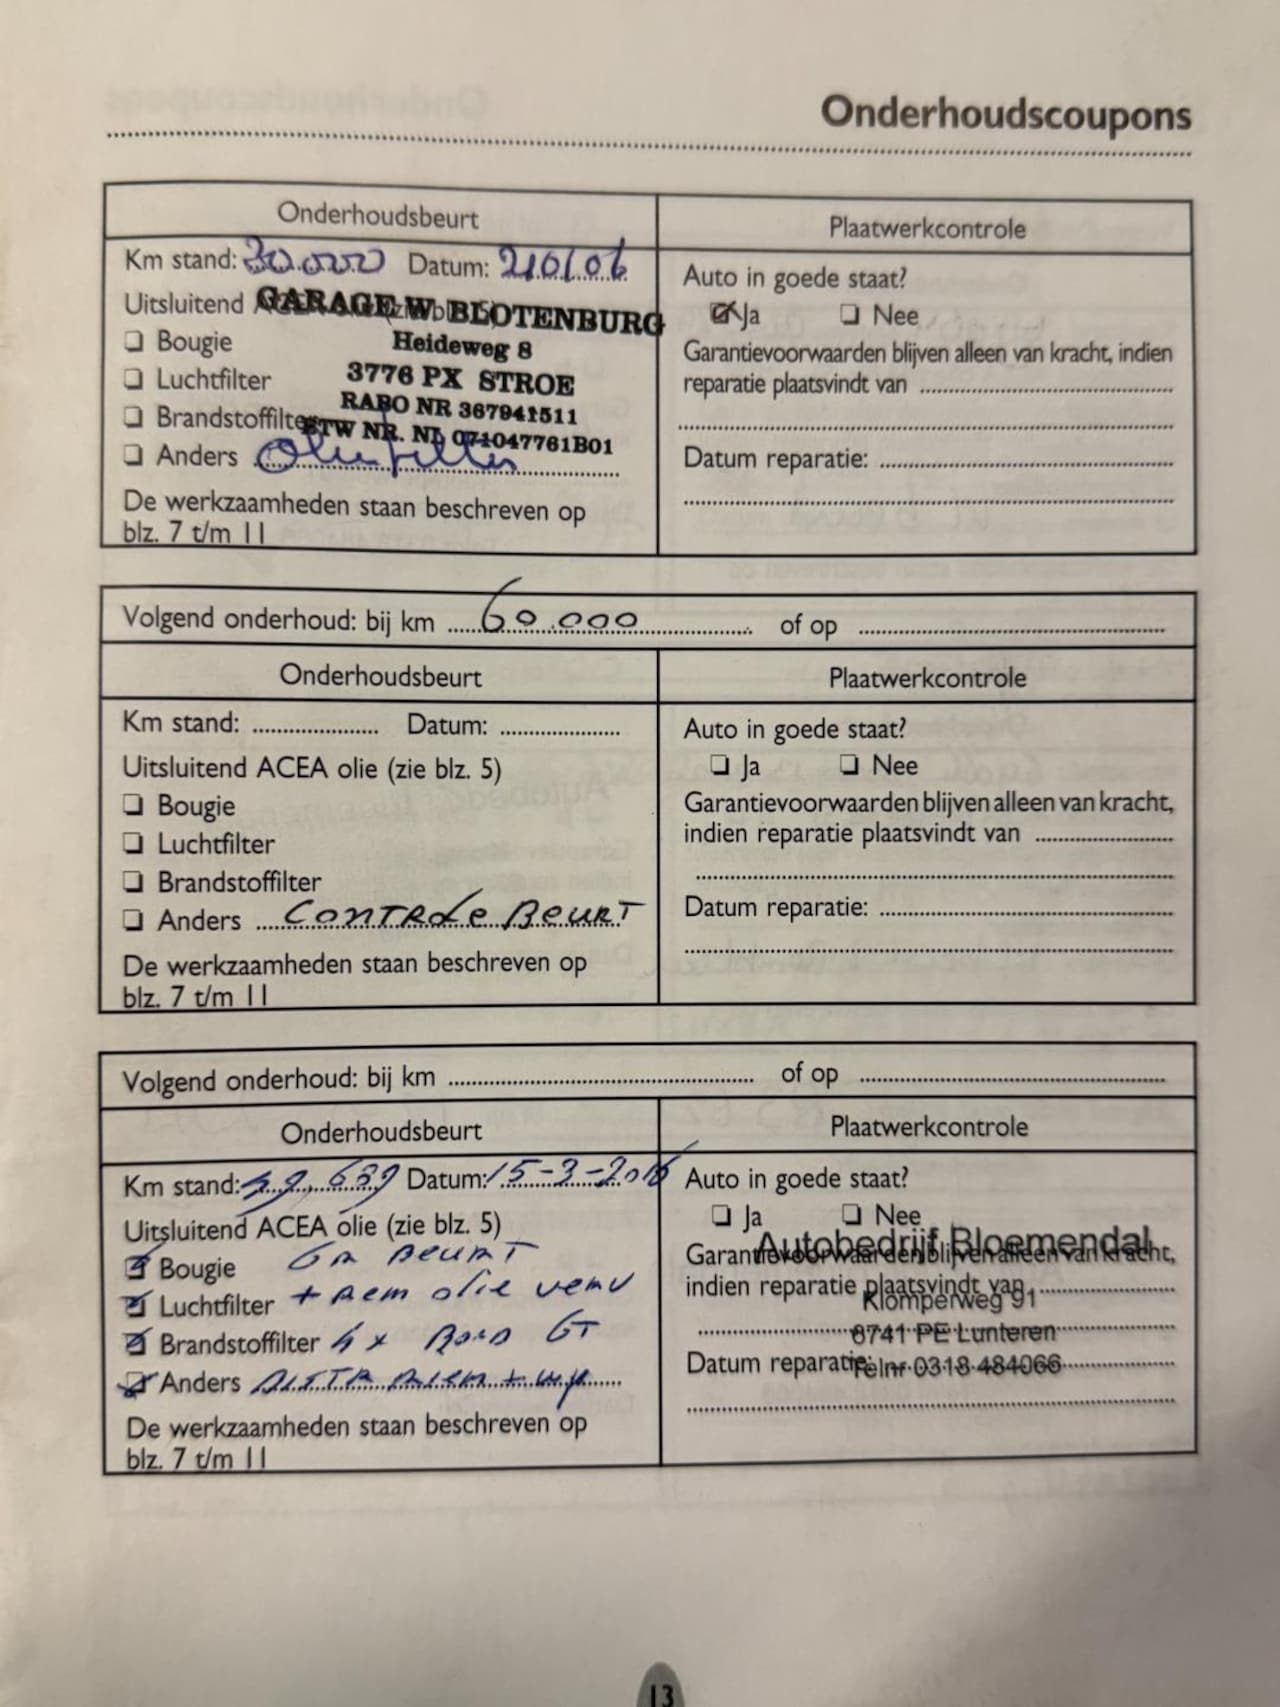 Onderhoudscoupons
Onderhoudsbeurt
Km stand: 30.000 Datum:
Uitsluitend ACEA olie (zie blz. 5)
GARAGE W. BLOTENBURG
Heideweg 8
3776 PX STROE
RABO NR 367941511
BTW NR. NL 071047761B01
❏ Bougie
❏ Luchtfilter
❏ Brandstoffilter
❏ Anders Oliefilter
De werkzaamheden staan beschreven op
blz. 7 t/m 11
Plaatwerkcontrole
Auto in goede staat?
☑ Ja ❏ Nee
Garantievoorwaarden blijven alleen van kracht, indien
reparatie plaatsvindt van
Datum reparatie:
Volgend onderhoud: bij km 60.000 of op
Onderhoudsbeurt
Km stand: Datum:
Uitsluitend ACEA olie (zie blz. 5)
❏ Bougie
❏ Luchtfilter
❏ Brandstoffilter
❏ Anders CONTROLE BEURT
De werkzaamheden staan beschreven op
blz. 7 t/m 11
Plaatwerkcontrole
Auto in goede staat?
❏ Ja ❏ Nee
Garantievoorwaarden blijven alleen van kracht,
indien reparatie plaatsvindt van
Datum reparatie:
Volgend onderhoud: bij km of op
Onderhoudsbeurt
Km stand: 59.639 Datum: 15-3-2016
Uitsluitend ACEA olie (zie blz. 5)
☑ Bougie GR BEURT
☑ Luchtfilter + REM olie verv
☑ Brandstoffilter 4 x
☑ Anders DISTR RIEM + wp
De werkzaamheden staan beschreven op
blz. 7 t/m 11
Plaatwerkcontrole
Auto in goede staat?
❏ Ja ❏ Nee
Garantievoorwaarden blijven alleen van kracht,
indien reparatie plaatsvindt van
Datum reparatie:
Autobedrijf Bloemendal
Klomperweg 91
6741 PE Lunteren
Telnr 0318 484066
13